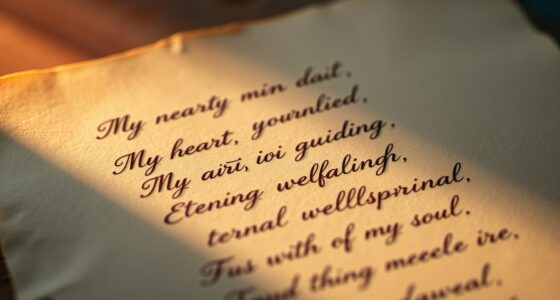 My nearty min dait,
My heart, yournlied,
My airi, ivi guiding,
Etening welfalingh,
ternal welllspirinal,
Tus with of my soul,
Toud thing meecle ire,